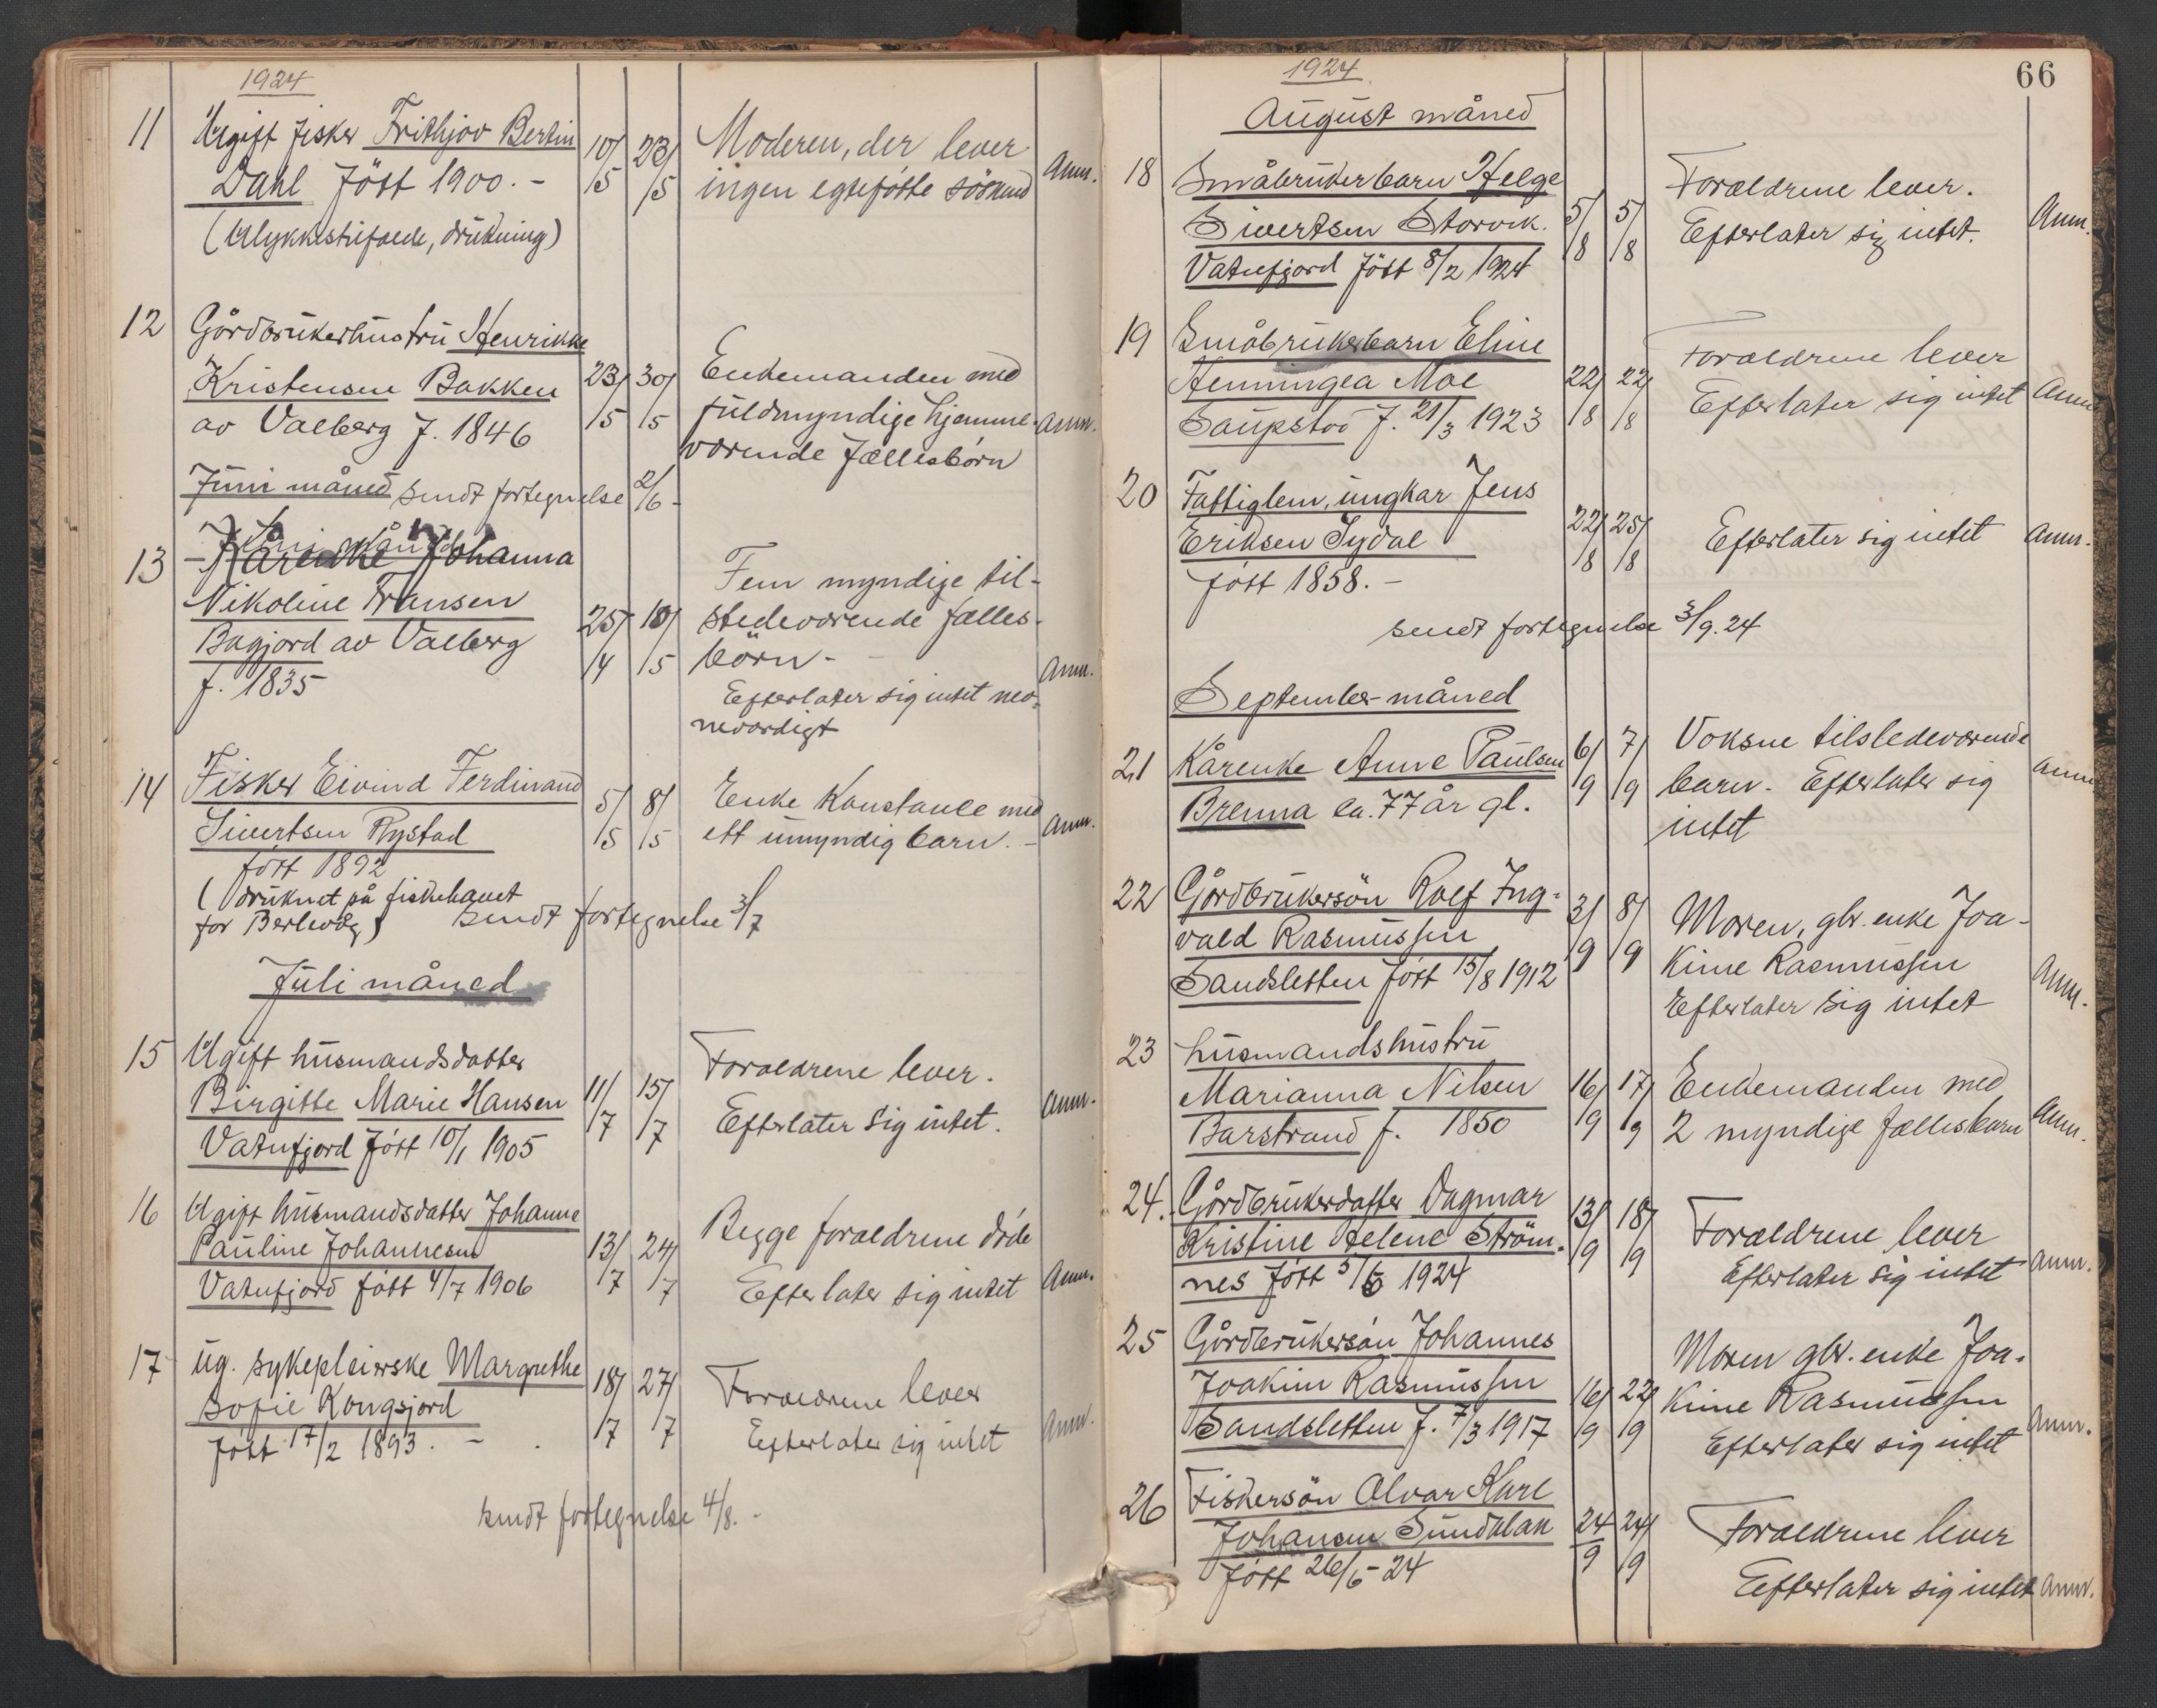 1924
11 Ugift fisker Frithjov Bertin 10/ 23/ Moderen, der lever
Dahl född 1900. - /5 /5 ingen egtefödte södskend Anm.
(Ulykkestilfælde, drukning)
12 Gårdbrukerhustru Henrikke
Kristensen Bakken 23/ 30/ Enkemanden med
av Valberg f. 1846 /5 /5 fuldmyndige hjemme- Anm.
værende fællesbörn
Juni måned sendt fortegnelse 2/6 -
13 Kårenke Johanna
Nikoline Fransen Fem myndige til-
Bagjord av Valberg 25/ 10/ stedeværende fælles-
f. 1835 /4 /5 börn - Anm.
Efterlater sig intet nev-
neværdigt
14 Fisker Eivind Ferdinand 5/ 8/ Enke Konstance med
Sivertsen Rystad /5 /5 ett umyndig barn. - Anm.
fött 1892
(druknet på fiskehavet
for Berlevåg) sendt fortegnelse 3/7
Juli måned
15 Ugift husmandsdatter Forældrene lever.
Birgitte Marie Hansen 11/ 15/ Efterlater sig intet. Anm.
Vatnfjord fött 10/1 1905 /7 /7
16 Ugift husmandsdatter Johanne
Pauline Johannesen 13/ 24/ Begge forældrene döde
Vatnfjord fött 4/7 1906 /7 /7 Efterlater sig intet Anm.
17 ug. sykepleierske Margrethe 18/ 27/ Forældrene lever
Sofie Kongsjord /7 /7 Efterlater sig intet Anm.
fött 17/2 1893. -
sendt fortegnelse 4/8. -
66
1924
August måned
18 Småbrukerbarn Helge Forældrene lever.
Sivertsen Storvik. 5/ 5/ Efterlater sig intet. Anm.
Vatnfjord fött 8/2 1924 /8 /8
19 Småbrukerbarn Eline Forældrene lever
Henningea Moe 22/ 22/ Efterlater sig intet Anm.
Saupstad f. 21/3 1923 /8 /8
20 Fattiglem, ungkar Jens
Eriksen Sydal 22/ 25/ Efterlater sig intet Anm.
fött 1858. - /8 /8
sendt fortegnelse 3/9. 24
September måned
21 Kårenke Anne Paulsen 6/ 7/ Voksne tilstedeværende
Brenna ca. 77 år gl. /9 /9 barn. Efterlater sig Anm.
intet
22 Gårdbrukersön Rolf Ing- 3/ 8/ Moren, gbr. enke Joa-
vald Rasmussen /9 /9 kime Rasmussen
Sandsletten fött 15/8 1912 Efterlater sig intet Anm.
23 husmandshustru
Marianna Nilsen 16/ 17/ Enkemanden med
Barstrand f. 1850 /9 /9 2 myndige fællesbarn Anm.
24. Gårdbrukerdatter Dagmar 13/ 18/
Kristine Helene Ström- /9 /9 Forældrene lever
nes fött 5/5 1924 Efterlater sig intet Anm.
25 Gårdbrukersön Johannes Moren gbr. enke Joa-
Joakim Rasmussen 16/ 22/ kime Rasmussen
Sandsletten f. 7/3 1917 /9 /9 Efterlater sig intet Anm.
26 Fiskersön Alvar Karl
Johansen Sundklak 24/ 24/ Forældrene lever
fött 26/5 - 24 9 /9 Efterlater sig intet Anm.